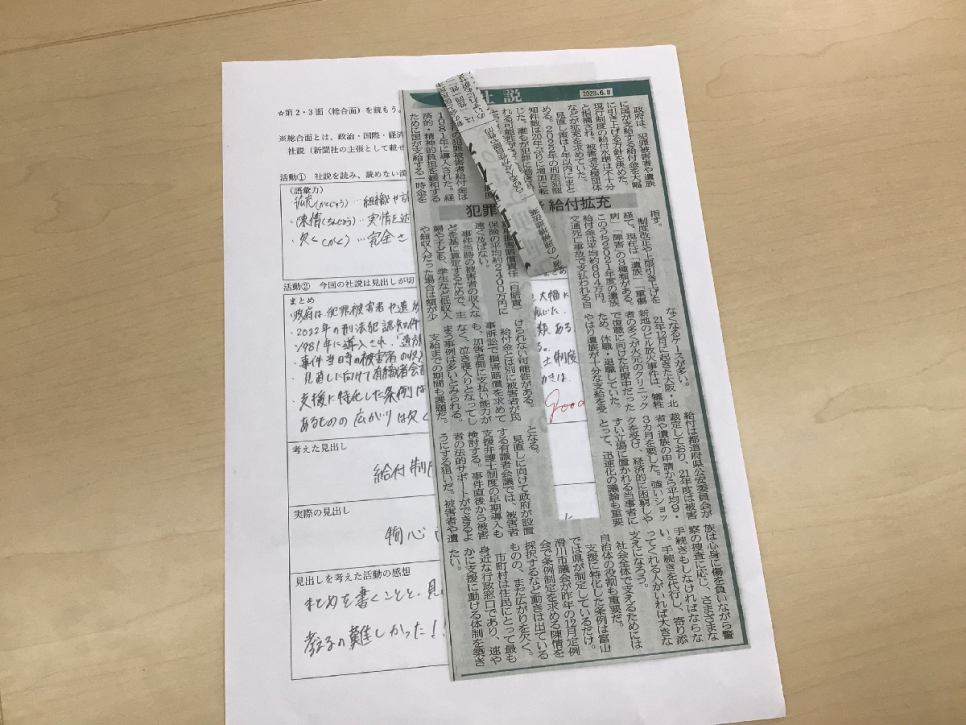 ☆第2・3面（総合面）を読もう。
※総合面とは、政治・国際・経済
社説（新聞社の主張として載せ
活動① 社説を読み、読めない漢
（語彙力）
・拡充(かくじゅう)…組織や
・陳情(ちんじょう)…実情を述
・欠く(かく)…完全さ
活動② 今回の社説は見出しが切
まとめ
・政府は、犯罪被害者や遺
・2022年の刑法犯認知件
・1981年に導入され、「遺
・事件当時の被害者の収
・見直しに向けて有識者会
・支援に特化した条例は
あるものの広がりは欠く
考えた見出し
給付制
実際の見出し
物心
見出しを考えた活動の感想
まとめを書くことと、見
考えるの難しかった！
大幅に
ある
制度
good
社説
2023.6.8
犯罪
給付拡充
政府は、犯罪被害者や遺族
に国が支給する給付金を大幅
に引き上げる方針を決めた。
現行制度の給付水準は不十分
と指摘され、被害者支援団体
などが拡充を求めていた。
見直しは1年以内にまと
める。2022年の刑法犯認
知件数は20年ぶりに増加に転
じた。誰もが犯罪に巻き込ま
の犯罪被害者給付金は
1981年に導入された。経
済的・精神的負担を緩和する
ために国が支給する一時金を
指す。
制度改正や上限引き上げを
経て、現在は「遺族」「重傷
病」「障害」の3種類がある。
このうち2022年度の遺族
給付金は平均約664万円。
交通死亡事故で支払われる自
動車損害賠償責任（自賠責）
保険の平均約2400万円に
遠く及ばない。
事件当時の被害者の収入な
どを基に算定するためで、主
婦や子ども、学生など低収入
や無収入だった場合は額が少
なくなるケースが多い。
21年12月に起きた大阪・北
新地のビル放火事件は、犠牲
者の多くが火元のクリニック
で復職に向けた治療中だった
ため、休職・退職していた。
やはり遺族が十分な支給を受
けられない可能性がある。
給付金とは別に被害者が民
事訴訟で損害賠償を求めて
も、加害者側に支払い能力が
なく、泣き寝入りとなってし
まう事例は多いとみられる。
支給までの期間も課題だ。
給付は都道府県公安委員会が
裁定しており、21年度は被害
者や遺族の申請から平均9・
3カ月を要した。強いショッ
クを受け、経済的に困窮しや
すい立場に置かれる当事者に
とって、迅速化の議論も重要
となる。
見直しに向けて政府が設置
する有識者会議では、被害者
支援弁護士制度の早期導入も
検討する。事件直後から被害
者の法的サポートができるよ
うにする狙いだ。被害者や遺
族は心身に傷を負いながら警
察の捜査に応じ、さまざまな
手続きもしなければならな
い。手続きを代行し、寄り添
ってくれる人がいれば大きな
支えになろう。
社会全体で支えるためには
自治体の役割も重要だ。
支援に特化した条例は富山
では県が制定しているだけ。
滑川市議会が昨年の12月定例
会で条例制定を求める陳情を
採択するなど動きは出ている
ものの、まだ広がりを欠く。
市町村は住民にとって最も
身近な行政窓口であり、速や
かに支援に動ける体制を築き
たい。